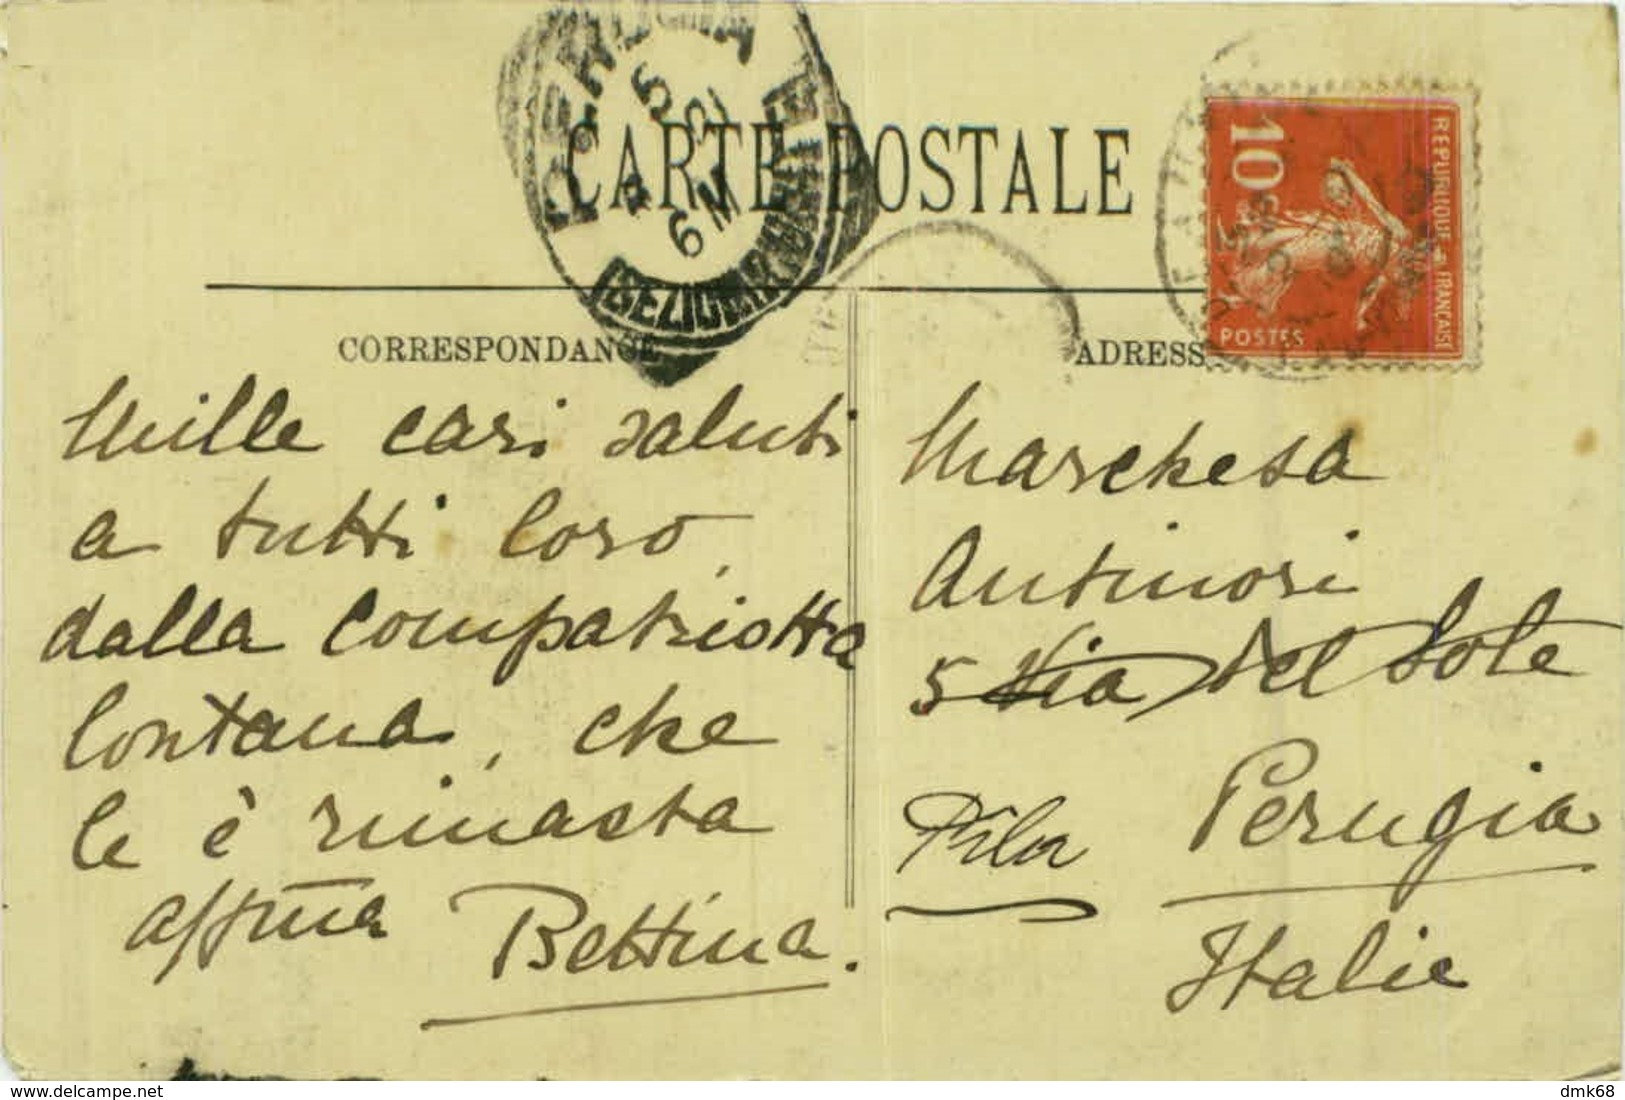 CARTE POSTALE
PERUGIA
5 12
6 M
10c
REPUBLIQUE FRANÇAISE
POSTES
CORRESPONDANCE
ADRESSE
Mille cari saluti
a tutti loro,
dalla compatriotta
lontana, che
le è rimasta
affma Bettina.
Marchesa
Antinori
5 Via del Sole
Pila
Perugia
Italie
delcampe.net
dmk68